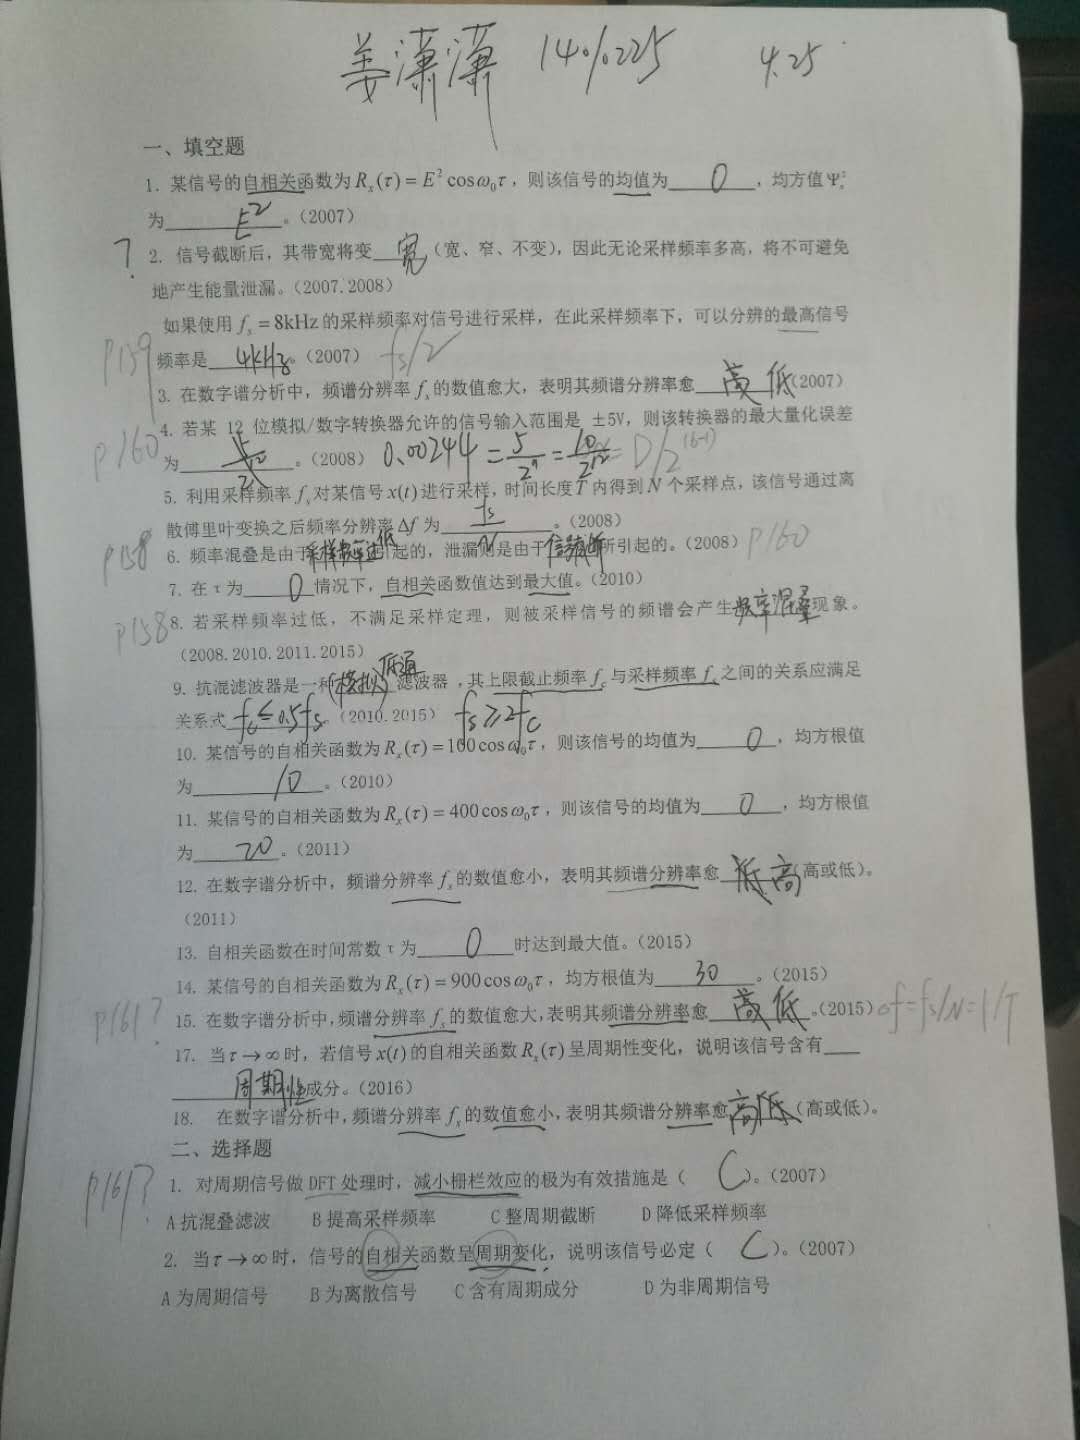 姜潇潇 140%225 4.25
一、填空题
1. 某信号的自相关函数为 Rx(τ) = E² cosω₀τ，则该信号的均值为 0 ，均方值 Ψx²
为 E² 。（2007）
? 2. 信号截断后，其带宽将变 宽 （宽、窄、不变），因此无论采样频率多高，将不可避免
地产生能量泄漏。（2007.2008）
如果使用 fs = 8kHz 的采样频率对信号进行采样，在此采样频率下，可以分辨的最高信号
P159 频率是 4kHz。（2007） fs/2
3. 在数字谱分析中，频谱分辨率 fs 的数值愈大，表明其频谱分辨率愈 高 低 （2007）
4. 若某 12 位模拟/数字转换器允许的信号输入范围是 ±5V，则该转换器的最大量化误差
P160 为 。（2008） 0.00244 = 5/2ⁿ = 10/2¹² = D/2^(b-1)
5. 利用采样频率 fs 对某信号 x(t) 进行采样，时间长度 T 内得到 N 个采样点，该信号通过离
散傅里叶变换之后频率分辨率 Δf 为 fs/N 。（2008）
P158 6. 频率混叠是由于采样频率过低引起的，泄漏则是由于信号截断所引起的。（2008） P160
7. 在 τ 为 0 情况下，自相关函数值达到最大值。（2010）
P158 8. 若采样频率过低，不满足采样定理，则被采样信号的频谱会产生频率混叠现象。
（2008.2010.2011.2015）
9. 抗混滤波器是一种(模拟)低通滤波器，其上限截止频率 fc 与采样频率 fs 之间的关系应满足
关系式 fc≤0.5fs。（2010.2015） fs≥2fc
10. 某信号的自相关函数为 Rx(τ) = 100cosω₀τ，则该信号的均值为 0 ，均方根值
为 10 。（2010）
11. 某信号的自相关函数为 Rx(τ) = 400cosω₀τ，则该信号的均值为 0 ，均方根值
为 20 。（2011）
12. 在数字谱分析中，频谱分辨率 fs 的数值愈小，表明其频谱分辨率愈 低 高 （高或低）。
（2011）
13. 自相关函数在时间常数 τ 为 0 时达到最大值。（2015）
14. 某信号的自相关函数为 Rx(τ) = 900cosω₀τ，均方根值为 30 。（2015）
P161? 15. 在数字谱分析中，频谱分辨率 fs 的数值愈大，表明其频谱分辨率愈 高 低 。（2015） Δf=fs/N=1/T
17. 当 τ→∞ 时，若信号 x(t) 的自相关函数 Rx(τ) 呈周期性变化，说明该信号含有
周期性成分。（2016）
18. 在数字谱分析中，频谱分辨率 fs 的数值愈小，表明其频谱分辨率愈 高 低 （高或低）。
二、选择题
P161? 1. 对周期信号做 DFT 处理时，减小栅栏效应的极为有效措施是（ C ）。（2007）
A 抗混叠滤波 B 提高采样频率 C 整周期截断 D 降低采样频率
2. 当 τ→∞ 时，信号的自相关函数呈周期变化，说明该信号必定（ C ）。（2007）
A 为周期信号 B 为离散信号 C 含有周期成分 D 为非周期信号